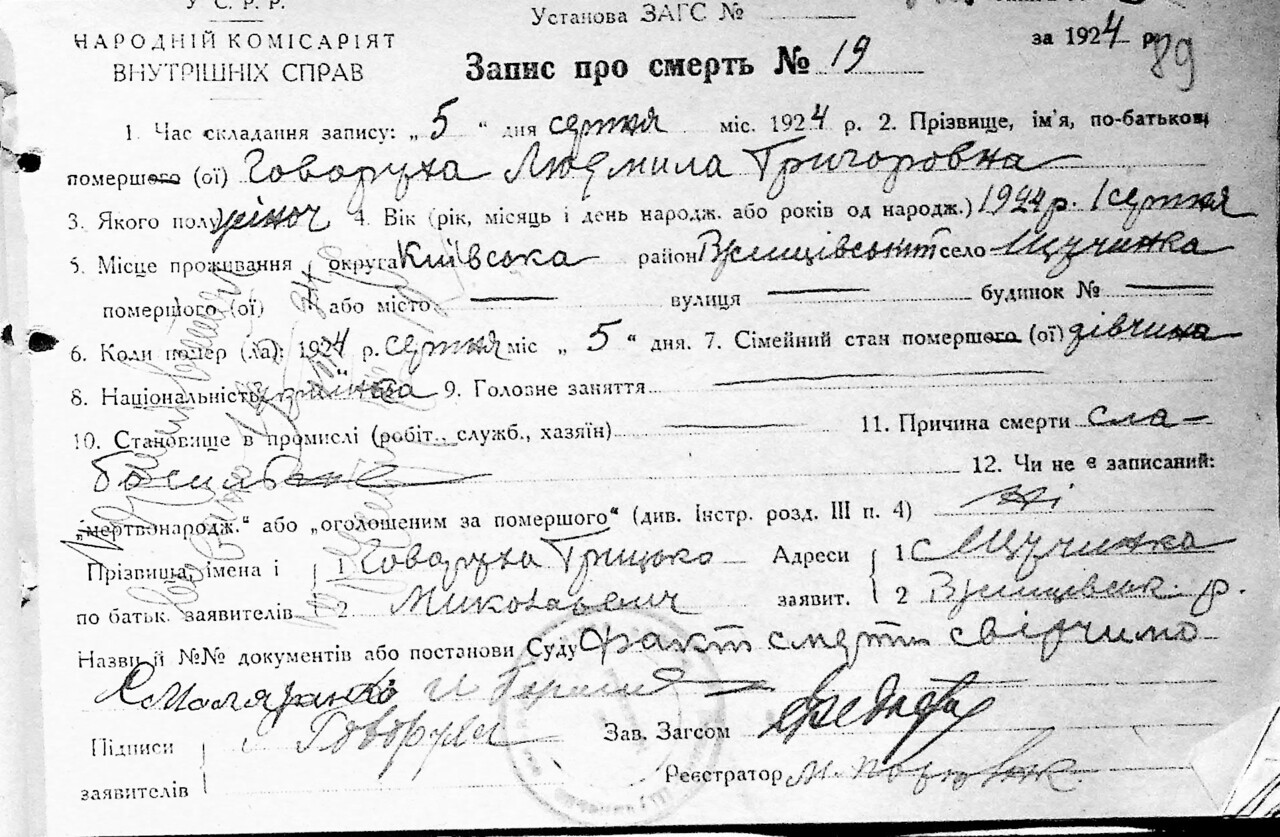 У С. Р. Р.
НАРОДНІЙ КОМІСАРІЯТ
ВНУТРІШНІХ СПРАВ
Установа ЗАГС №
за 1924 р.
89
Запис про смерть № 19
1. Час складання запису: „ 5 “ дня серпня міс. 1924 р. 2. Прізвище, ім'я, по-батькові
помершого (ої) Говоруха Людмила Григоровна
3. Якого полу жіноч 4. Вік (рік, місяць і день народж. або років од народж.) 1924 р. 1 серпня
5. Місце проживання округа Київська район село Щучинка
помершого (ої) або місто вулиця будинок №
6. Коли помер (ла): 1924 р. серпня міс „ 5 “ дня. 7. Сімейний стан помершого (ої) дівчина
8. Національність українка 9. Головне заняття
10. Становище в промислі (робіт., служб., хазяїн) 11. Причина смерти сла-
12. Чи не є записаний:
„мертвонародж.“ або „оголошеним за помершого“ (див. Інстр. розд. III п. 4) ні
Прізвища, імена і 1 Говоруха Грицько Адреси 1 с Щучинка
по батьк. заявителів 2 Миколаевич заявит. 2 р.
Назви й №№ документів або постанови Суду Факт смерти свідчимо
Підписи Говоруха Зав. Загсом
заявителів Реєстратор